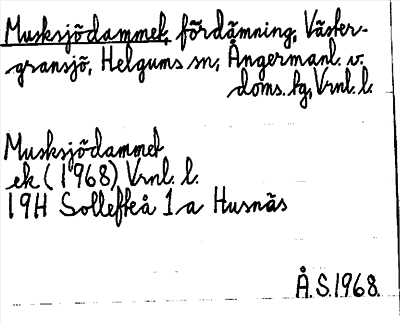 Musksjödammet, fördämning, Väster-
gransjö, Helgums sn, Ångermanl. v.
doms. tg, Vrnl. l.
Musksjödammet
ek (1968) Vrnl. l.
19H Sollefteå 1a Husnäs
Å.S.1968.